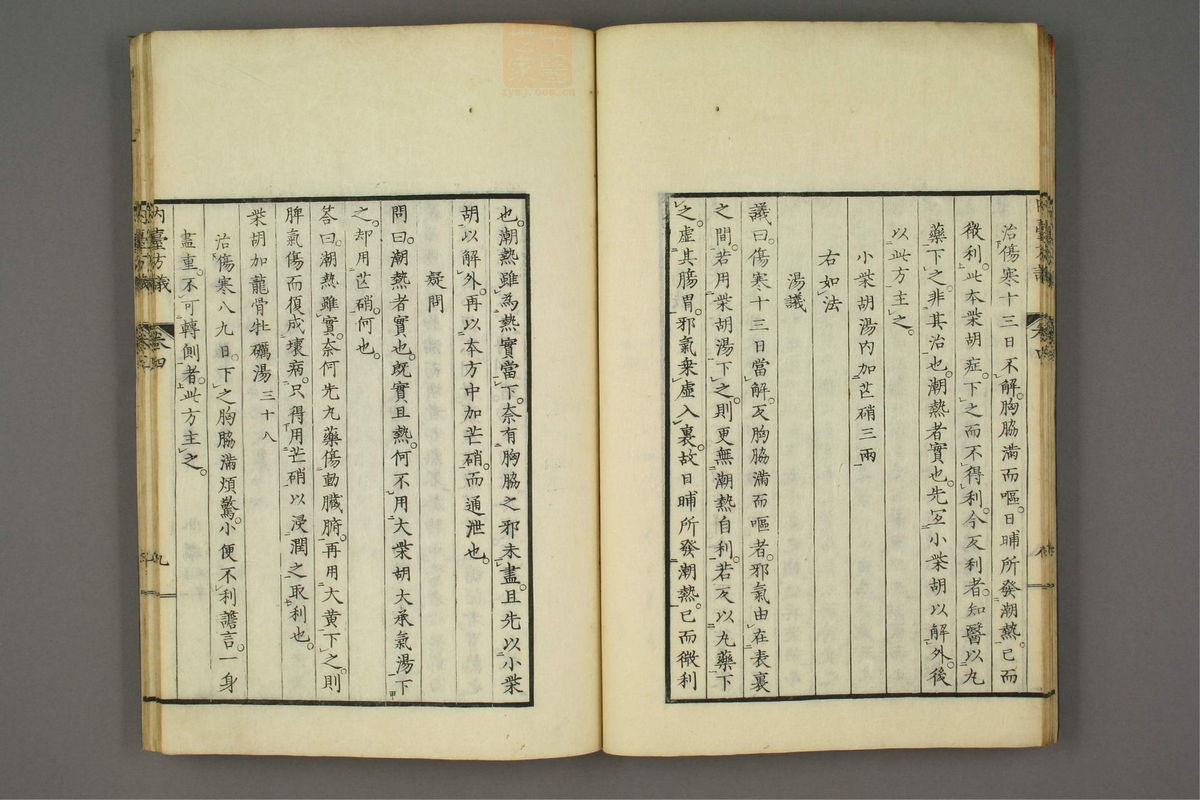 治傷寒十三日不解。胸脇滿而嘔。日晡所發潮熱。已而
微利。此本柴胡症。下之而不得利。今反利者。知醫以丸
藥下之。非其治也。潮熱者實也。先宜小柴胡以解外。後
以此方主之。
小柴胡湯內加芒硝三兩
右如法
湯議
議曰。傷寒十三日當解。反胸脇滿而嘔者。邪氣由在表裏
之間。若用柴胡湯下之。則更無潮熱自利。若反以丸藥下
之。虛其腸胃。邪氣乘虛入裏。故日晡所發潮熱。已而微利
也。潮熱雖為熱實當下。奈有胸脇之邪未盡。且先以小柴
胡以解外。再以本方中加芒硝。而通泄也。
疑問
問曰。潮熱者實也。既實且熱。何不用大柴胡大承氣湯下
之。却用芒硝。何也。
答曰。潮熱雖實。奈何先丸藥傷動臟腑。再用大黃下之。則
脾氣傷而復成壞病。只得用芒硝以浸潤之取利也。
柴胡加龍骨牡礪湯 三十八
治傷寒八九日。下之胸脇滿煩驚。小便不利譫言。一身
盡重。不可轉側者。此方主之。
內臺方議 卷四